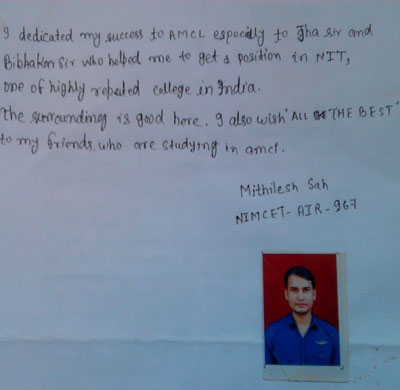 I dedicated my success to AMCL especially to Jha sir and
Bibhakar Sir who helped me to get a position in NIT,
one of highly reputed college in India.
The surrounding is good here. I also wish "ALL THE BEST"
to my friends, who are studying in amcl.
Mithilesh Sah
NIMCET- AIR - 967